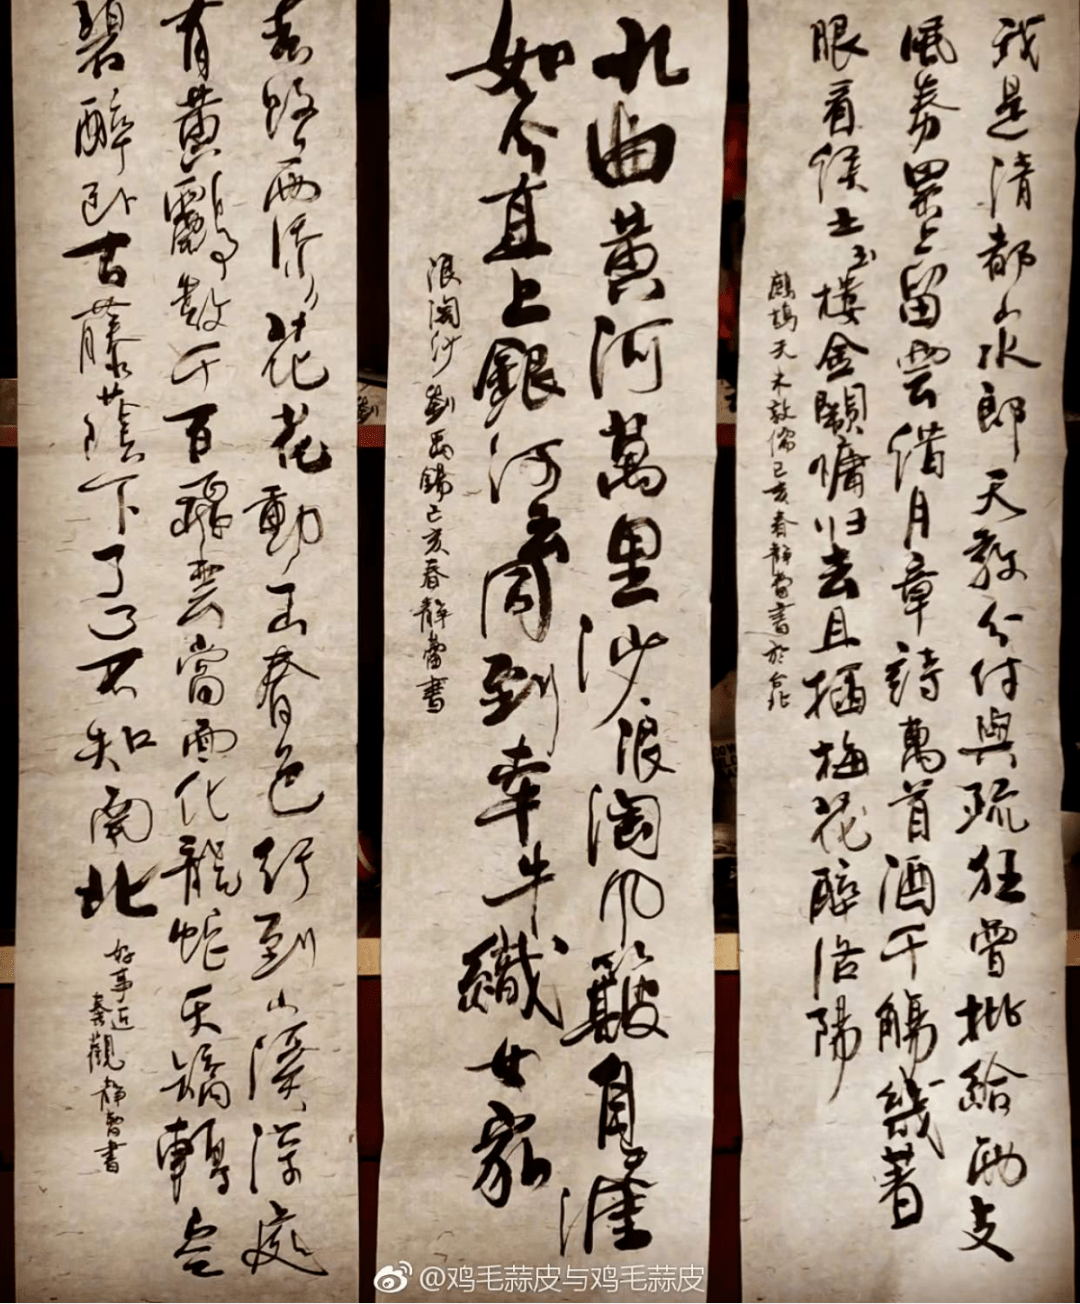 我是清都山水郎天教分付與疏狂曾批給雨支
風券累上留雲借月章詩萬首酒千觴幾著
眼看侯王玉樓金闕慵归去且插梅花醉洛陽
鷓鴣天朱敦儒己亥春靜當書於台北
九曲黃河萬里沙浪淘风簸自涯
如今直上銀河去同到牽牛織女家
浪淘沙劉禹錫己亥春靜當書
春路雨添花花動一山春色行到小溪深處
有黃鸝數千百飛雲當面化龍蛇夭矯轉空
碧醉卧古藤蔭下了了不知南北
好事近
秦觀靜當書
@鸡毛蒜皮与鸡毛蒜皮